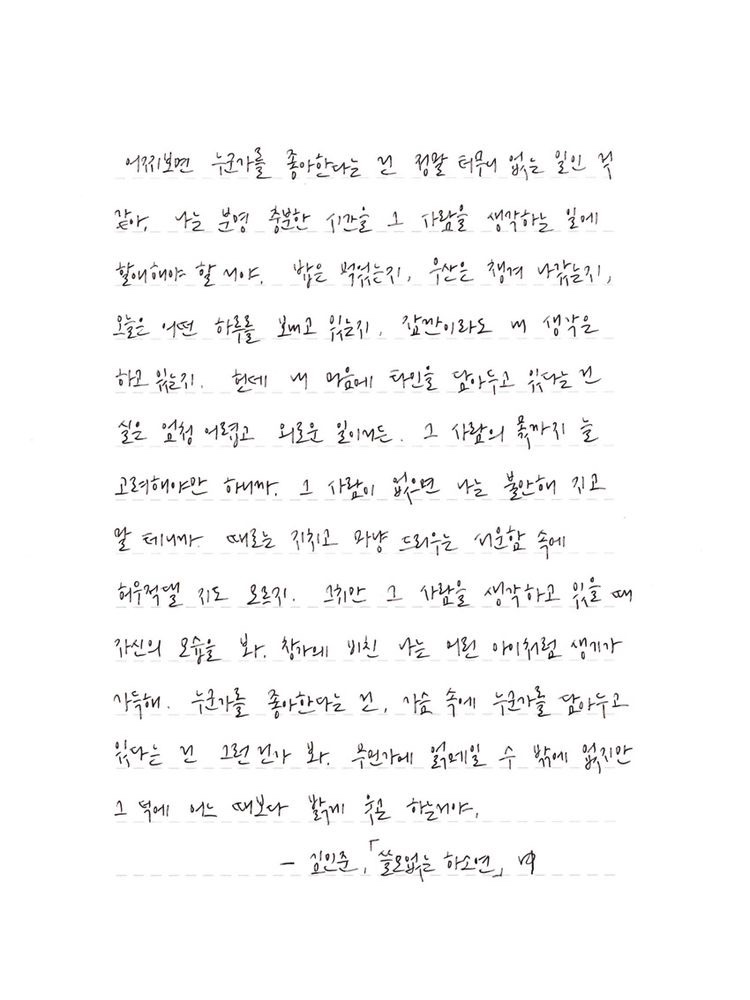 어찌보면 누군가를 좋아한다는 건 정말 터무니 없는 일인 것
같아. 나는 분명 충분한 시간을 그 사람을 생각하는 일에
할애해야 할 거야. 밥은 먹었는지, 우산은 챙겨 나갔는지,
오늘은 어떤 하루를 보내고 있는지, 잠깐이라도 내 생각은
하고 있는지. 헌데 내 마음에 타인을 담아두고 있다는 건
실은 엄청 어렵고 외로운 일이거든. 그 사람의 몫까지 늘
고려해야만 하니까. 그 사람이 없으면 나는 불안해 지고
말 테니까. 때로는 지치고 마냥 드리우는 서운함 속에
허우적댈 지도 모르지. 그치만 그 사람을 생각하고 있을 때
자신의 모습을 봐. 창가에 비친 나는 어린 아이처럼 생기가
가득해. 누군가를 좋아한다는 건, 가슴 속에 누군가를 담아두고
있다는 건 그런건가 봐. 무언가에 얽매일 수 밖에 없지만
그 덕에 어느 때보다 밝게 웃곤 하는거야.
– 김인준, 「쓸모없는 하소연」 中